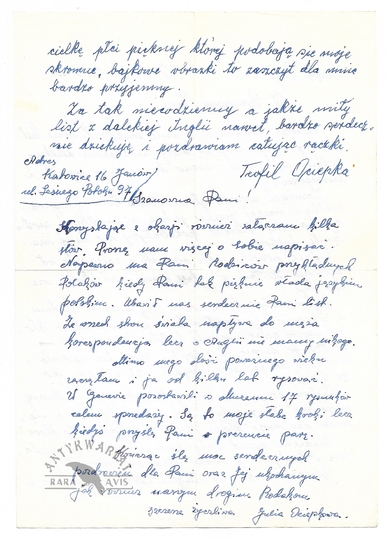 cielkę płci pięknej której podobają się moje
skromne, bajkowe obrazki to zaszczyt dla mnie
bardzo przyjemny.
Za tak niecodzienny a jakże miły
list z dalekiej Inglii nawet, bardzo serdecz,
nie dziękuję i pozdrawiam całując rączki.
Adres
Teofil Ociepka
Katowice 16 Janów/
ul. Leśnego Potoku 97/
Szanowna Pani!
Korzystając z okazji również załączam kilka
słów. Proszę nam więcej o sobie napisać.
Napewno ma Pani Rodziców przykładnych
Polaków kiedy Pani tak pięknie włada językiem
polskim. Ubawił nas serdecznie Pani list.
Ze wszech stron świata napływa do męża
korespondencja lecz z Anglii nie mamy nikogo.
Mimo mego dość poważnego wieku
zaczęłam i ja od kilku lat rysować.
W Genewie pozostawili z muzeum 17 rysunków
celem sprzedaży. Są to moje słabe kroki lecz
kiedyś przyślę Pani w prezencie parę.
Kończąc ślę moc serdecznych
pozdrowień dla Pani oraz Jej ukochanym
jak również naszym drogim Rodakom
szczerze życzliwa Julia Ociepkowa.
ANTYKWARIAT
RARA AVIS